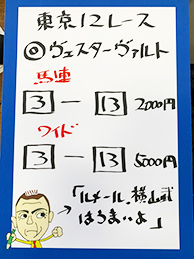 東京12レース
◎ヴェスターヴァルト
馬連
3 ー 13 2000円
ワイド
3 ー 13 5000円
「ルメール、横山武
はうまいよ」